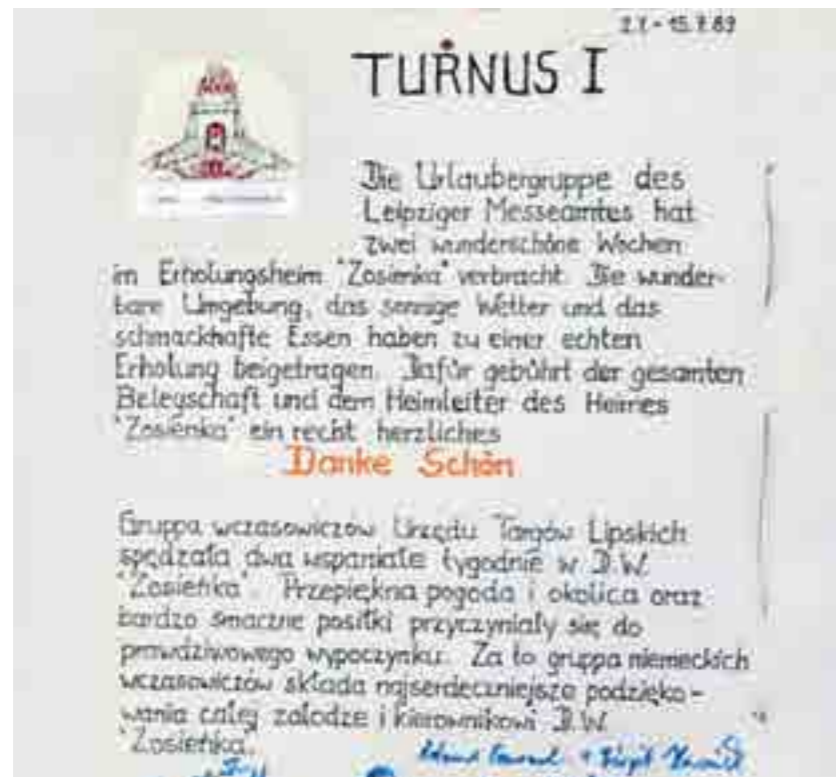 2.7 - 15.7.89
TURNUS I
Die Urlaubergruppe des
Leipziger Messeamtes hat
zwei wunderschöne Wochen
im Erholungsheim "Zosienka" verbracht. Die wunder-
bare Umgebung, das sonnige Wetter und das
schmackhafte Essen haben zu einer echten
Erholung beigetragen. Dafür gebührt der gesamten
Belegschaft und dem Heimleiter des Heimes
"Zosienka" ein recht herzliches
Danke Schön
Gruppa wczasowiczów Urzędu Targów Lipskich
spędzała dwa wspaniałe tygodnie w D.W.
"Zosieńka". Przepiękna pogoda i okolica oraz
bardzo smaczne posiłki przyczyniały się do
prawdziwowego wypoczynku. Za to gruppa niemeckich
wczasowiczów składa najserdeczniejsze podzięko-
wania całej załodze i kierownikowi D.W.
"Zosieńka".